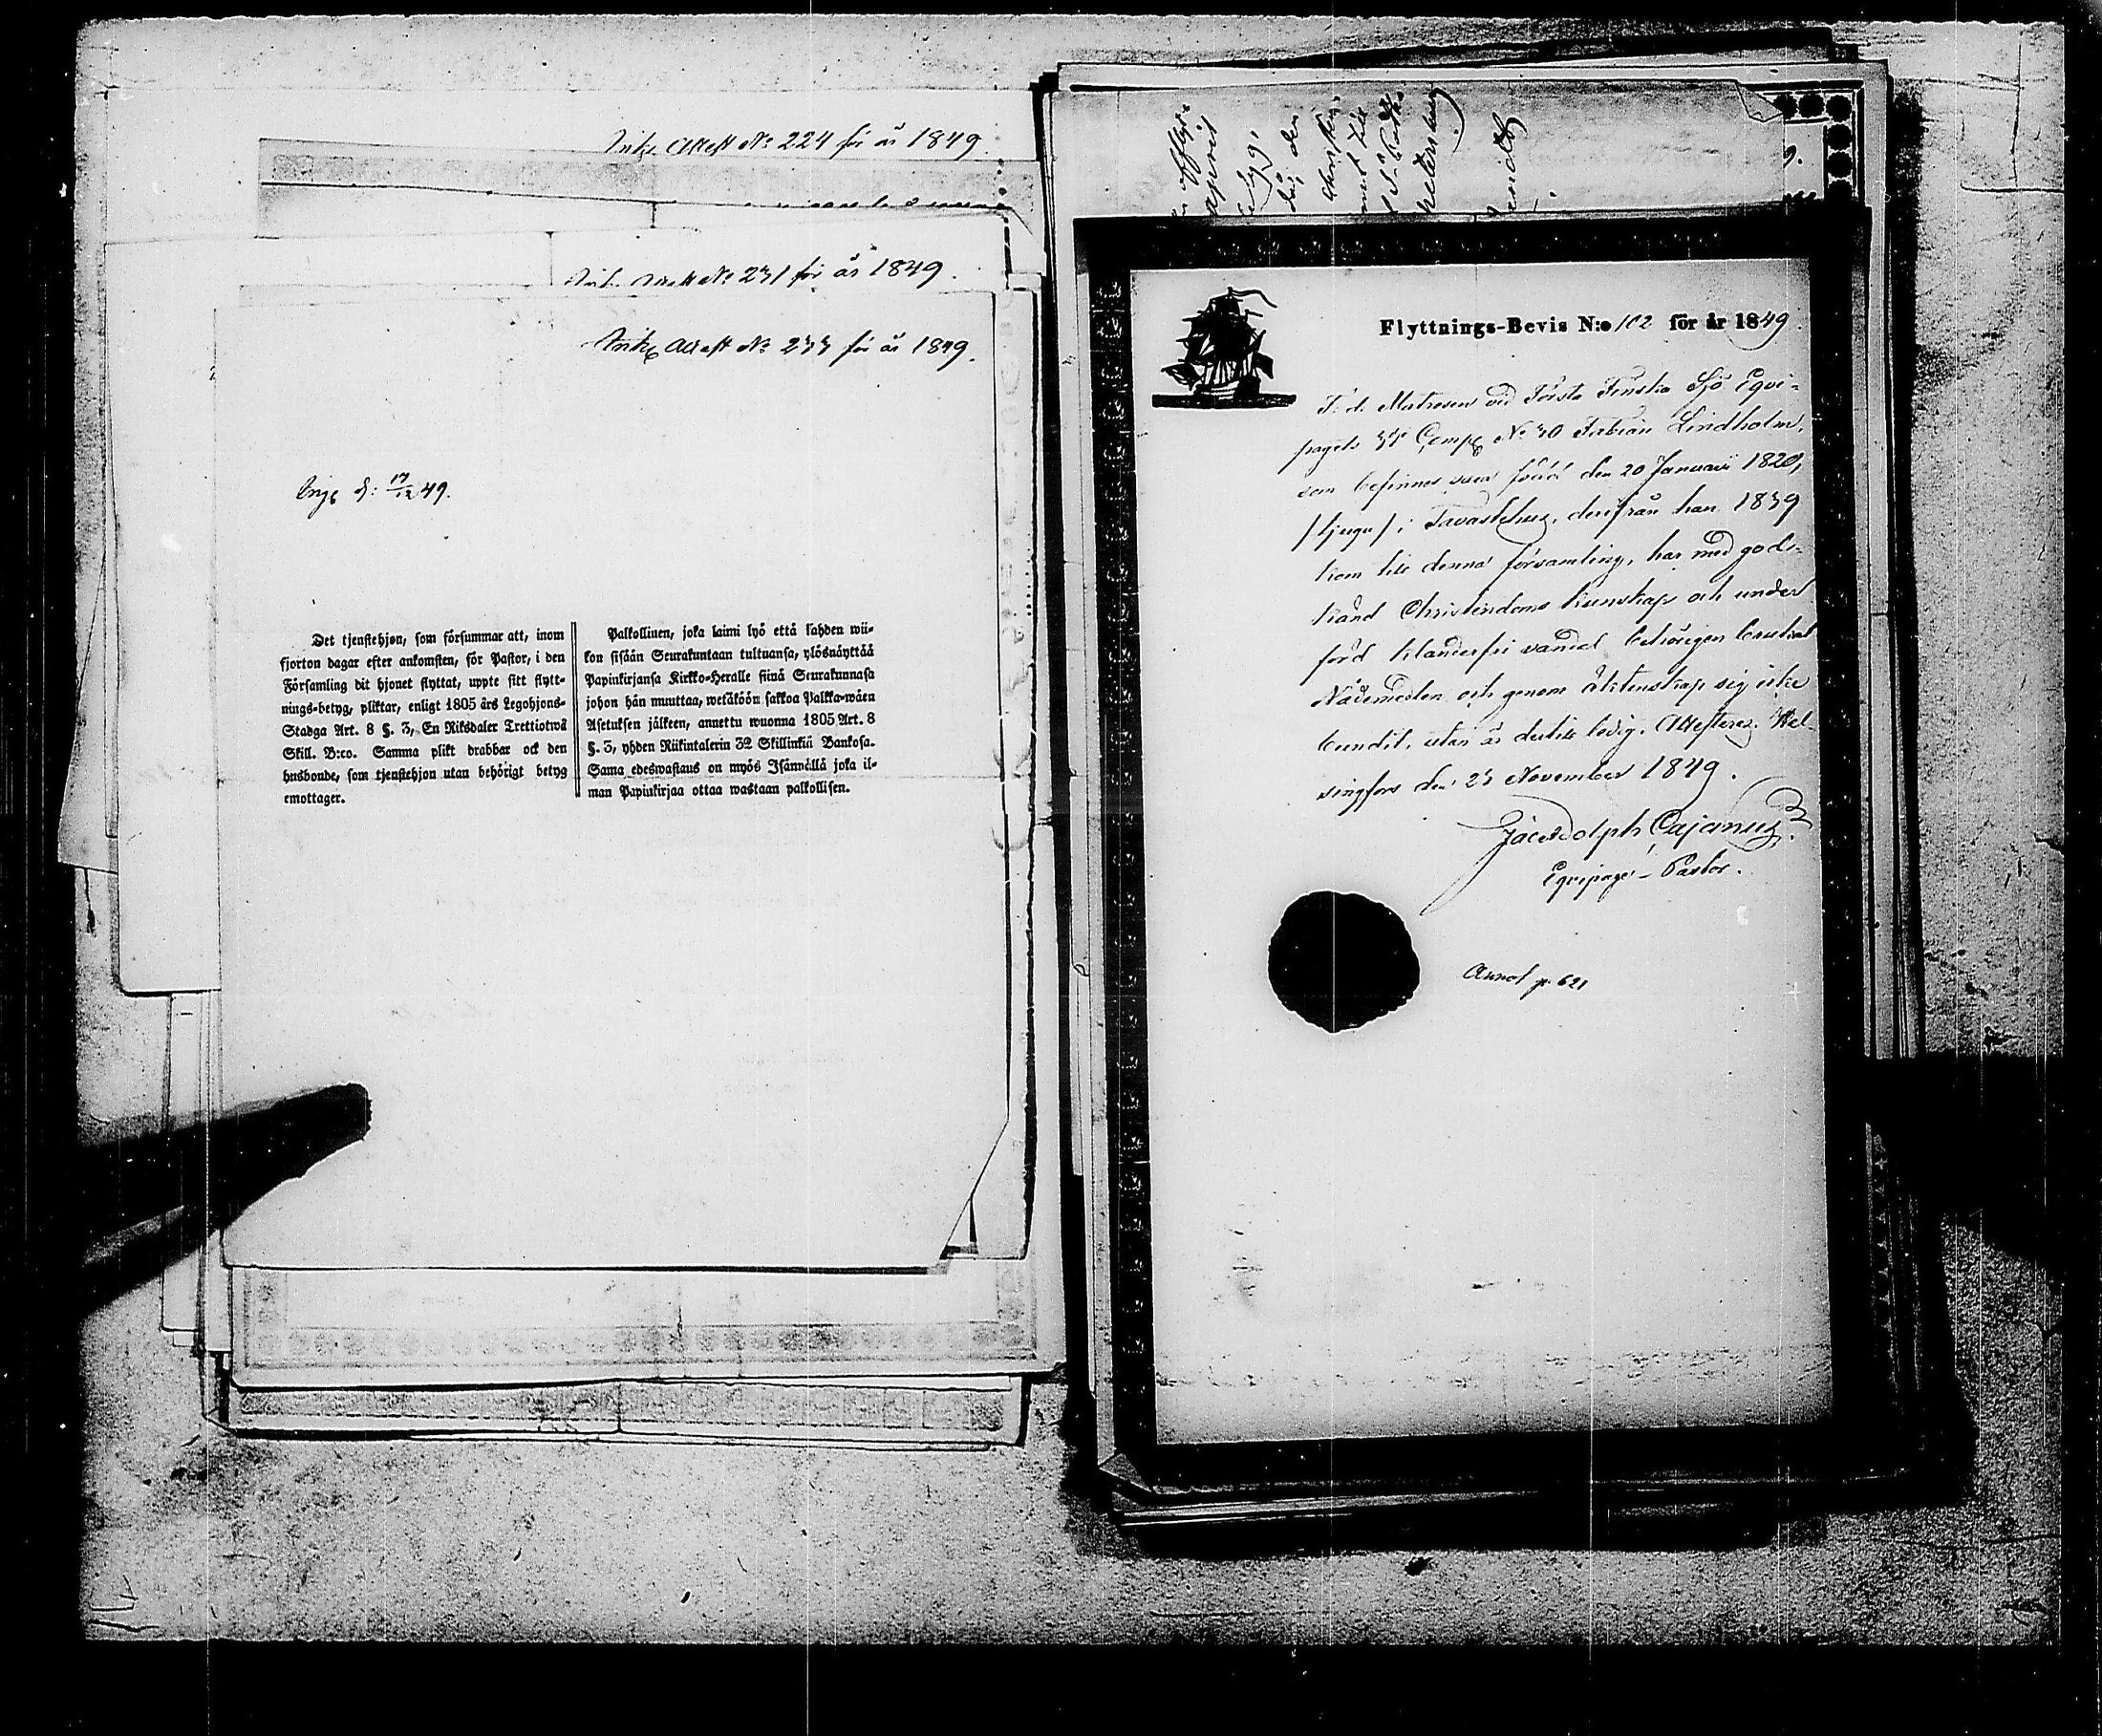 Attest No 224 för år 1849.
No 231 för år 1849.
Attest No 233 för år 1849.
d: 17/12 49.
Det tjenstehjon, som försummar att, inom
fjorton dagar efter ankomsten, för Pastor, i den
Församling dit hjonet flyttat, uppte sitt flytt-
nings-betyg, pliktar, enligt 1805 års Legohjons-
Stadga Art. 8 §. 3, En Riksdaler Trettiotwå
Skill. B:co. Samma plikt drabbar ock den
husbonde, som tjenstehjon utan behörigt betyg
emottager.
Palkollinen, joka laimi lyö että kahden wii-
kon sisään Seurakuntaan tultuansa, ylösnäyttää
Papinkirjansa Kirkko-Heralle siinä Seurakunnasa
johon hän muuttaa, wetäköön sakkoa Palkka-wäen
Asetuksen jälkeen, annettu wuonna 1805 Art. 8
§. 3, yhden Riikintalerin 32 Skillinkiä Bankosa.
Sama edeswastaus on myös Isännällä joka il-
man Papinkirjaa ottaa wastaan palkollisen.
Flyttnings-Bevis N:o 102 för år 1849.
F. d. Matrosen vid Första Finska Sjö Eqvi-
pagets Comp No 30 Fabian Lindholm,
som befinnes vara född den 20 Januarii 1820,
/tjugu/ i Tavastehus, derifrån han 1839
kom till denna församling, har med god-
känd Christendoms kunskap och under
förd klanderfri vandel behörigen brukat
Nådemedlen och genom äktenskap sig icke
bundit, utan är dertill ledig. Attesteras. Hel-
singfors den 23 November 1849.
Jac Adolph Cajanus
Eqvipage-Pastor.
Annot p. 621